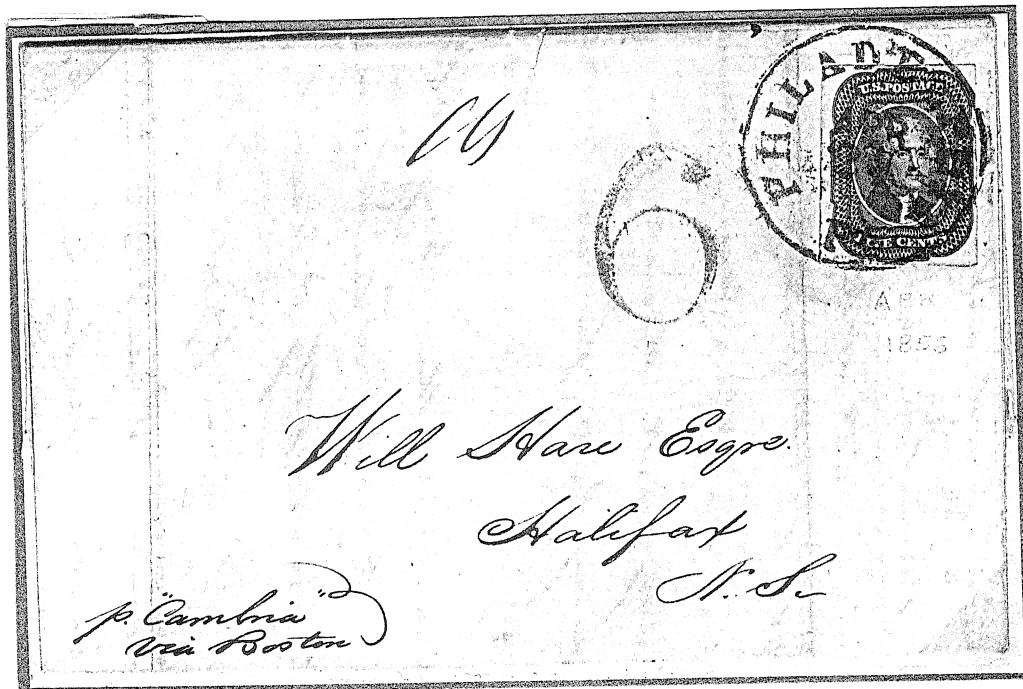 PHILAD
U.S. POSTAGE
FIVE CENTS
6
1856
Will Hare Esqre.
Halifax
N. S.
p. "Cambria"
via Boston